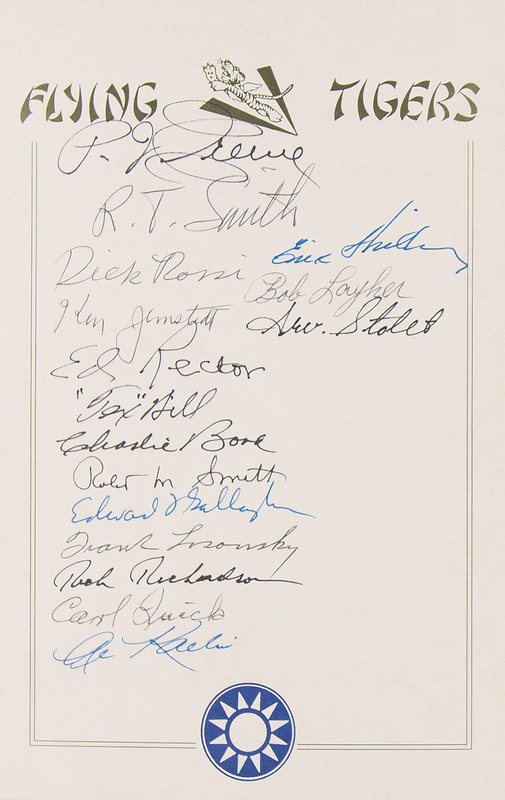 FLYING TIGERS
P. J. Greene
R. T. Smith
Eric Shilling
Dick Rossi
Bob Layher
Ken Jernstedt
Arv. Stolet
Ed Rector
"Tex" Hill
Charlie Bond
Robt M Smith
Edward Gallagher
Frank Losonsky
Rich Richardson
Carl Quick